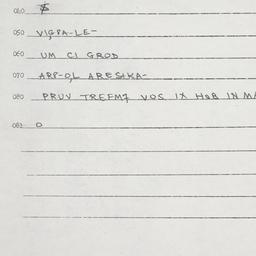 050 VIGPA-LE-
060 UM CI GROD
070 ARP-OL ARESAKA-
080 PRUV TREFM7 VOS IX HOB IN MA
O